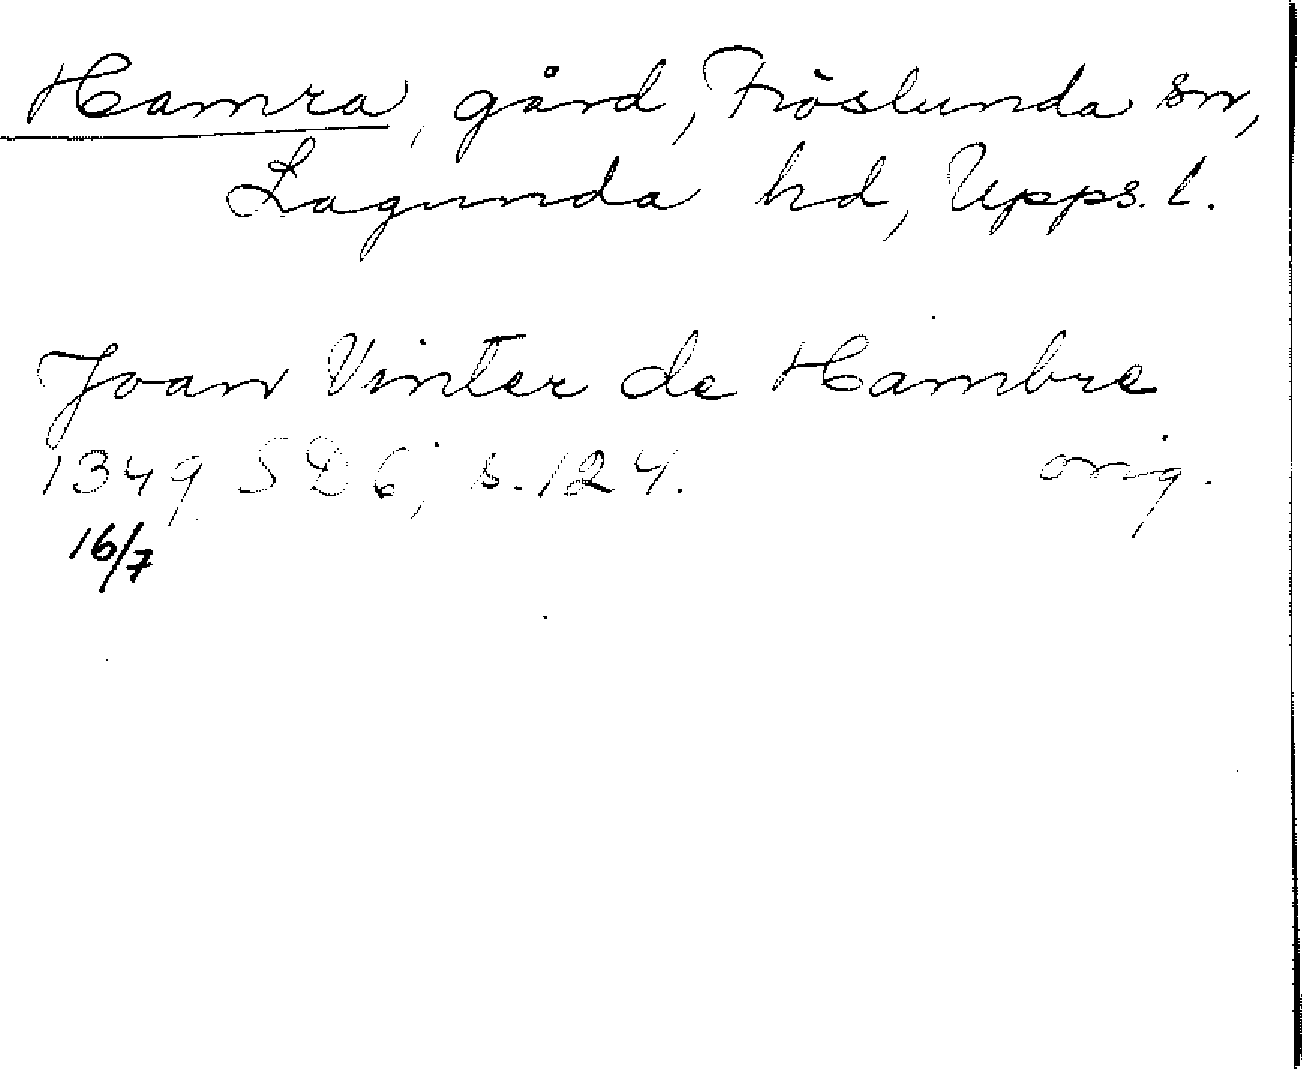 Hamra, gård, Fröslunda sn,
Lagunda hd, Upps. l.
Joan Vinter de Hambre
1349 SD 6, s. 124. orig.
16/7